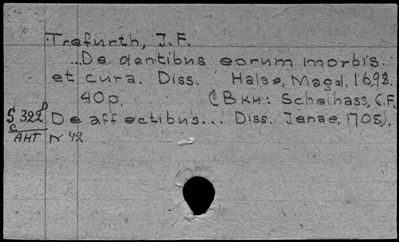 Trefurth, J.F.
...De dentibus eorum morbis.
et cura. Diss. Halae, Magd. 1698.
40p. (В кн: Schelhass, C.F.
De affectibus... Diss. Jenae, 1705).
S 322
c
АНТ N 42